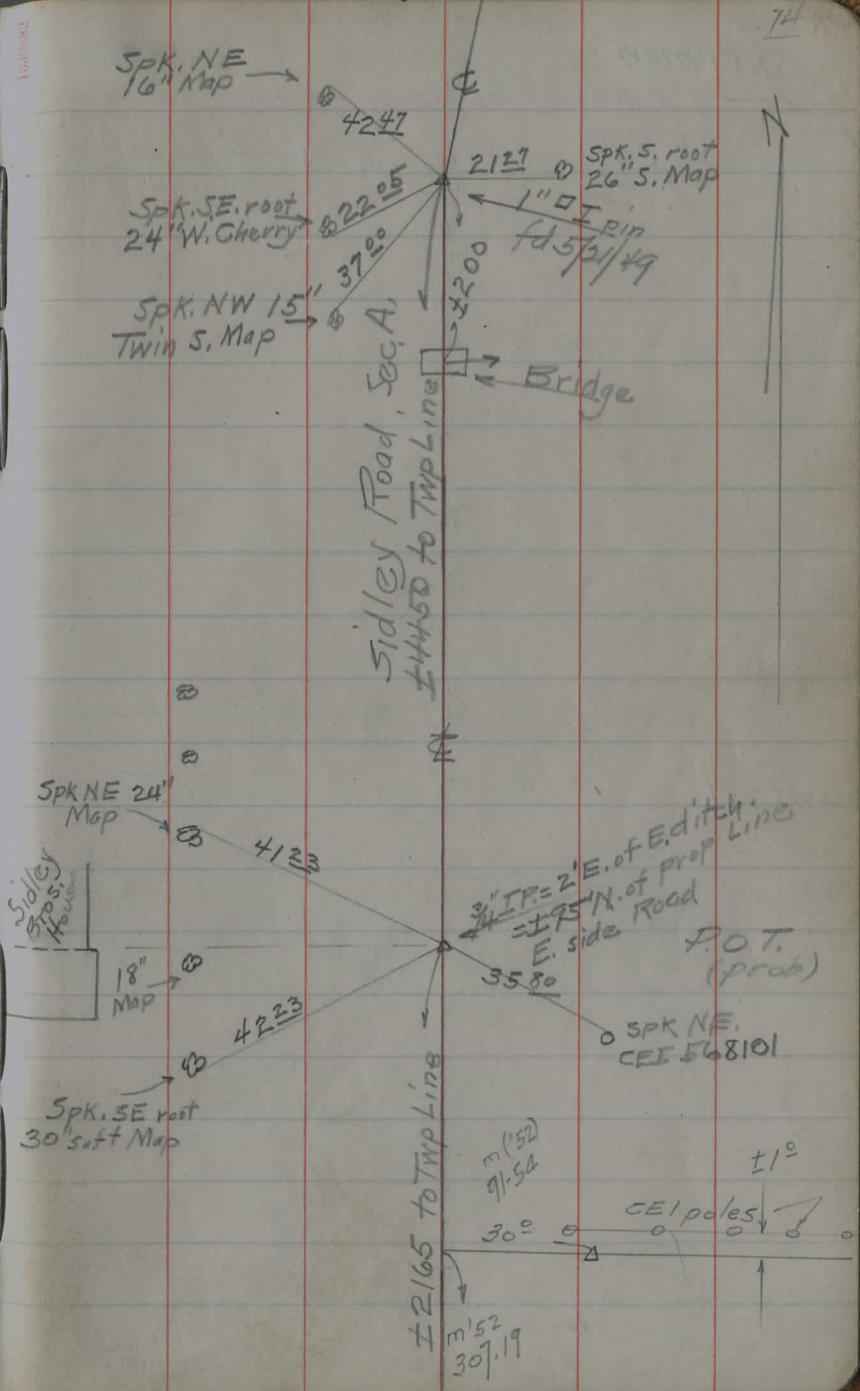 74
Spk. NE
16" Map
42 47
21 27
Spk. S. root
26" S. Map
Spk. S.E. root
24" W. Cherry
22 05
1" □ I pin
fd 5/21/49
37 00
Spk. NW 15"
Twin S. Map
±200
Bridge
Sidley Road, Sec, A,
±4450 to Twp Line
Spk NE 24"
Map
41 23
Sidley
Bros.
House
3/4" I.P. = 2' E. of E. ditch.
= ±95' N. of prop Line
E. side Road
P.O.T.
(prob)
18"
Map
35 80
42 23
Spk NE.
CEI 568101
Spk. SE root
30" soft Map
±2165 to Twp Line
m ('52)
91-54
±1°
CEI poles
30 0
m '52
307.19